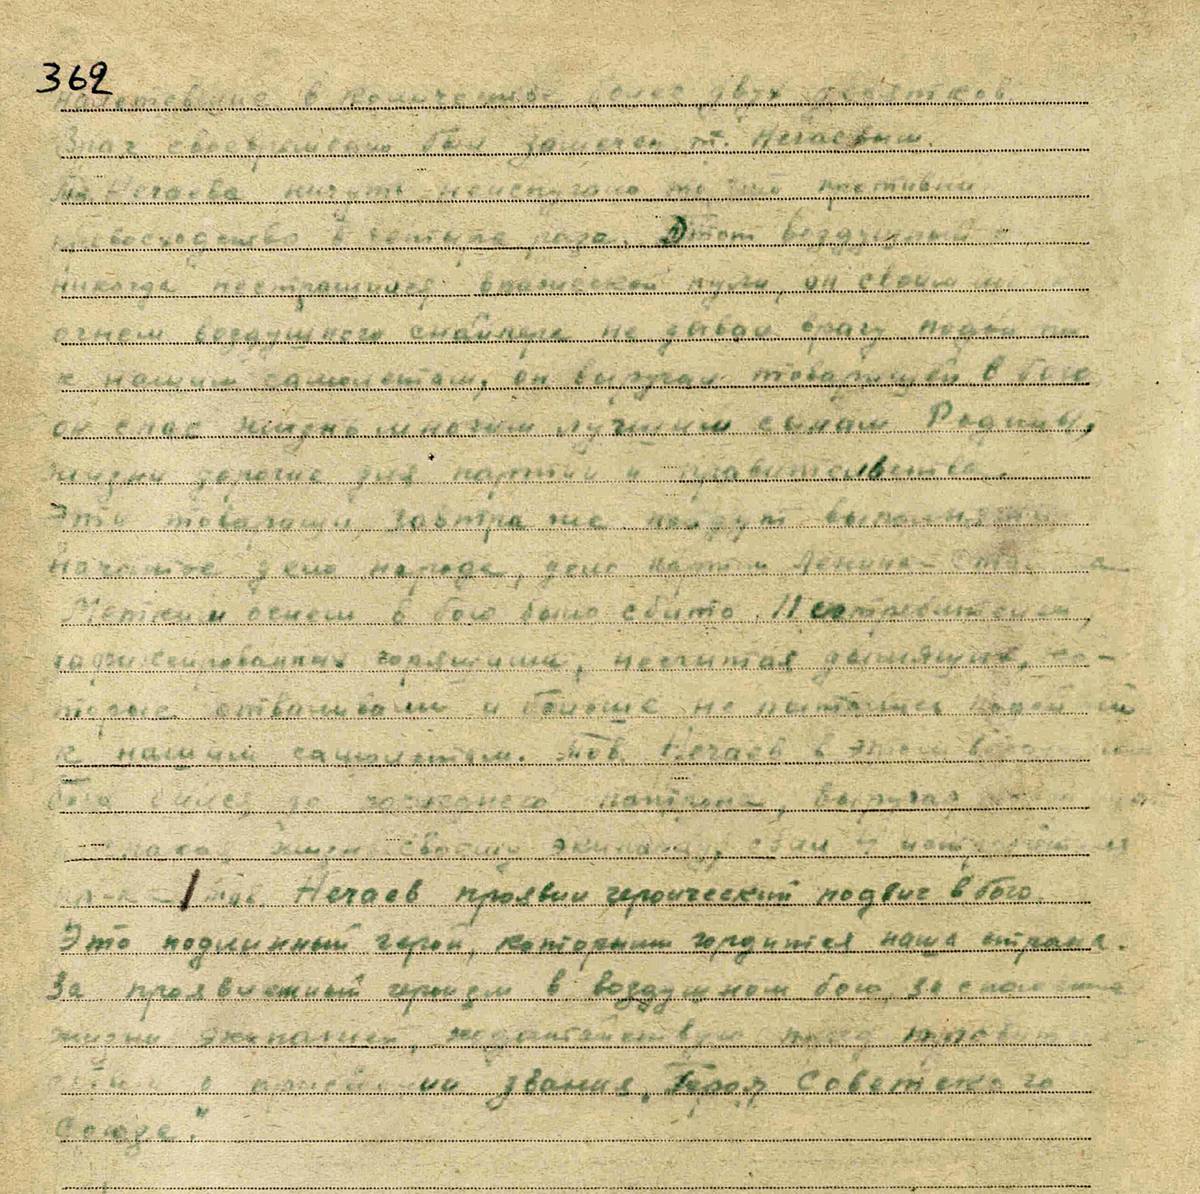 362
налетевшие в количестве более двух десятков.
Враг своевременно был замечен т. Нечаевым.
Тов. Нечаева ничуть неиспугало то что противни
превосходство в четыре раза. Этот воздушный
никогда нестрашился вражеской пули, он своим
огнем воздушного снайпера не давал врагу подой
к нашим самолетам, он выручал товарищей в бою
он спас жизнь многим лучшим сынам Родины,
жизни дорогие для партии и правительства.
Эти товарищи завтра же пойдут выполнять
начатое дело народа, дело партии Ленина-
Четким огнем в бою было сбито 11 истребителей,
зафиксированных горящими, несчитая дымящих, ко-
торые отваливали и больше не пытались
к нашим самолетам. Тов. Нечаев в этом
бою бился до последнего патрона, выручая
жизнь своему экипажу, сбил 4 истребителя
пр-ка = 1 тов. Нечаев проявил героический подвиг в бою.
Это подлинный герой, которым гордится наша страна.
За проявленный героизм в воздушном бою, за спасение
жизни экипажей, ходатайствую пред
о присвоении звания, Героя Советского
Союза."